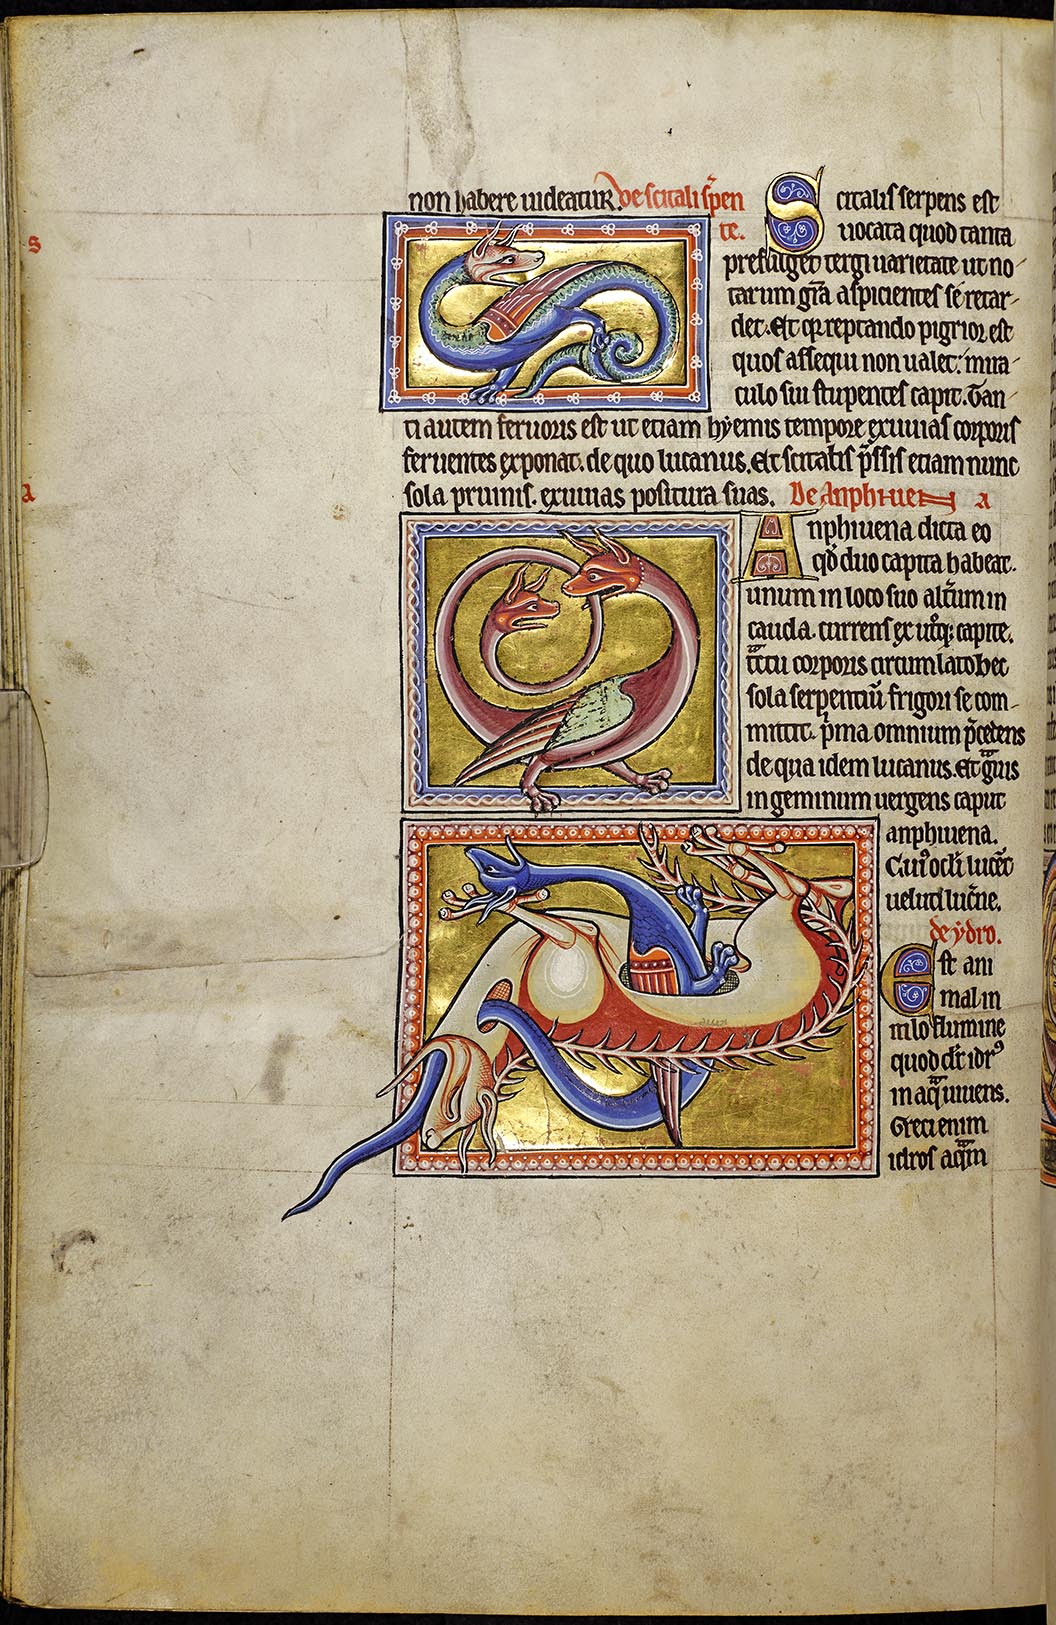 non habere uideatur. De scitali sp̄en
te. Scitalis serpens est
S
uocata quod tanta
prefulget tergi uarietate ut no-
tarum gr̄a aspicientes se retar-
det. Et qr reptando pigrior est
quos assequi non ualet: mira-
culo sui stupentes capit. Tan-
ti autem feruoris est ut etiam hẏemis tempore exuuias corporis
feruentes exponat. de quo lucanus. Et scitalis sp̄sis etiam nunc
sola pruinis. exuuias positura suas. De Anphiuena a
a
Anphiuena dicta eo
qd̄ duo capita habeat.
unum in loco suo alt̄um in
cauda. currens ex utͦq; capite.
tͣctu corporis circumlato hec
sola serpentiū frigori se com-
mittit. p̓ma omnium p̄cedens
de qua idem lucanus. Et gͣuis
in geminum uergens caput
anphiuena.
Cui᾿ ocl̓i lucēt
uelud luc̄ne.
de ẏdro.
Est ani
mal in
nilo flumine
quod dr̄ idr᾿
in aqͣ uiuens.
Greci enim
idros aqͣm